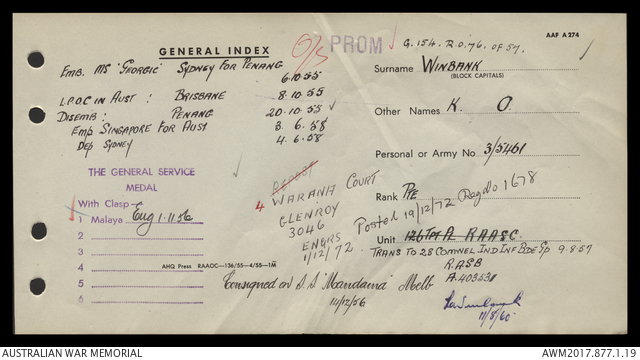 AAF A274
GENERAL INDEX
O/S PROM G.154. R.O.76. OF 57.
Emb. MS "Georgic" Sydney for Penang
6.10.55
Surname WINBANK
(BLOCK CAPITALS)
L.P.O.C in Aust : Brisbane 8.10.55
Disemb: Penang 20.10.55
Other Names K. O.
Emb Singapore for Aust 3.6.58
Dep Sydney 4.6.58
Personal or Army No. 3/5461
THE GENERAL SERVICE
MEDAL
With Clasp
1 Malaya Eng 1.11.56
2
3
4
5
6
4 WARANA COURT
GLENROY
3046
ENQRS
1/12/72
Posted 19/12/72 Reg No 1678
Rank Pte
Unit R.A.A.S.C.
TRANS TO 28 COMWEL IND INF BDE GP 9.8.57
R.A.S.B
A.403531
AHQ Press RAAOC—136/55—4/55—1M
Consigned on S.S "Mandama" Melb
14/12/56
11/8/60
AUSTRALIAN WAR MEMORIAL
AWM2017.877.1.19